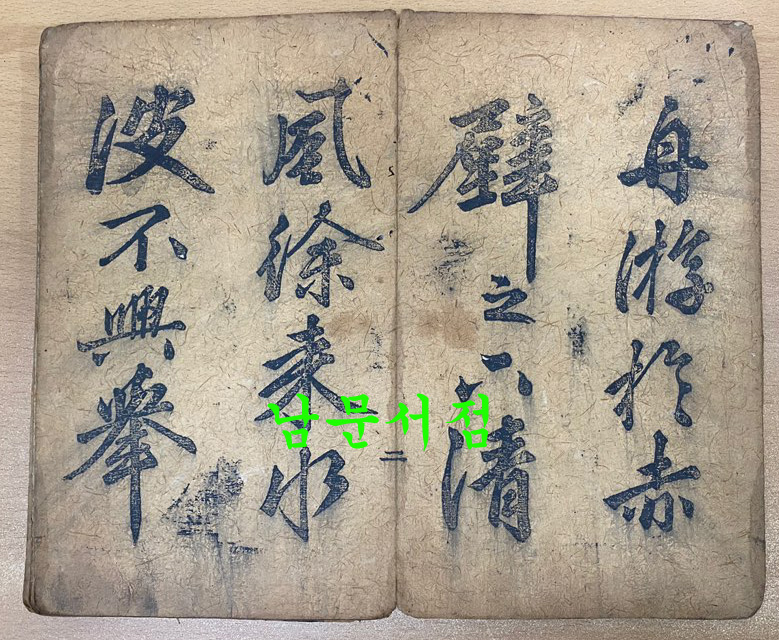 舟游於赤
壁之下清
風徐来水
波不興擧
二
남문서점